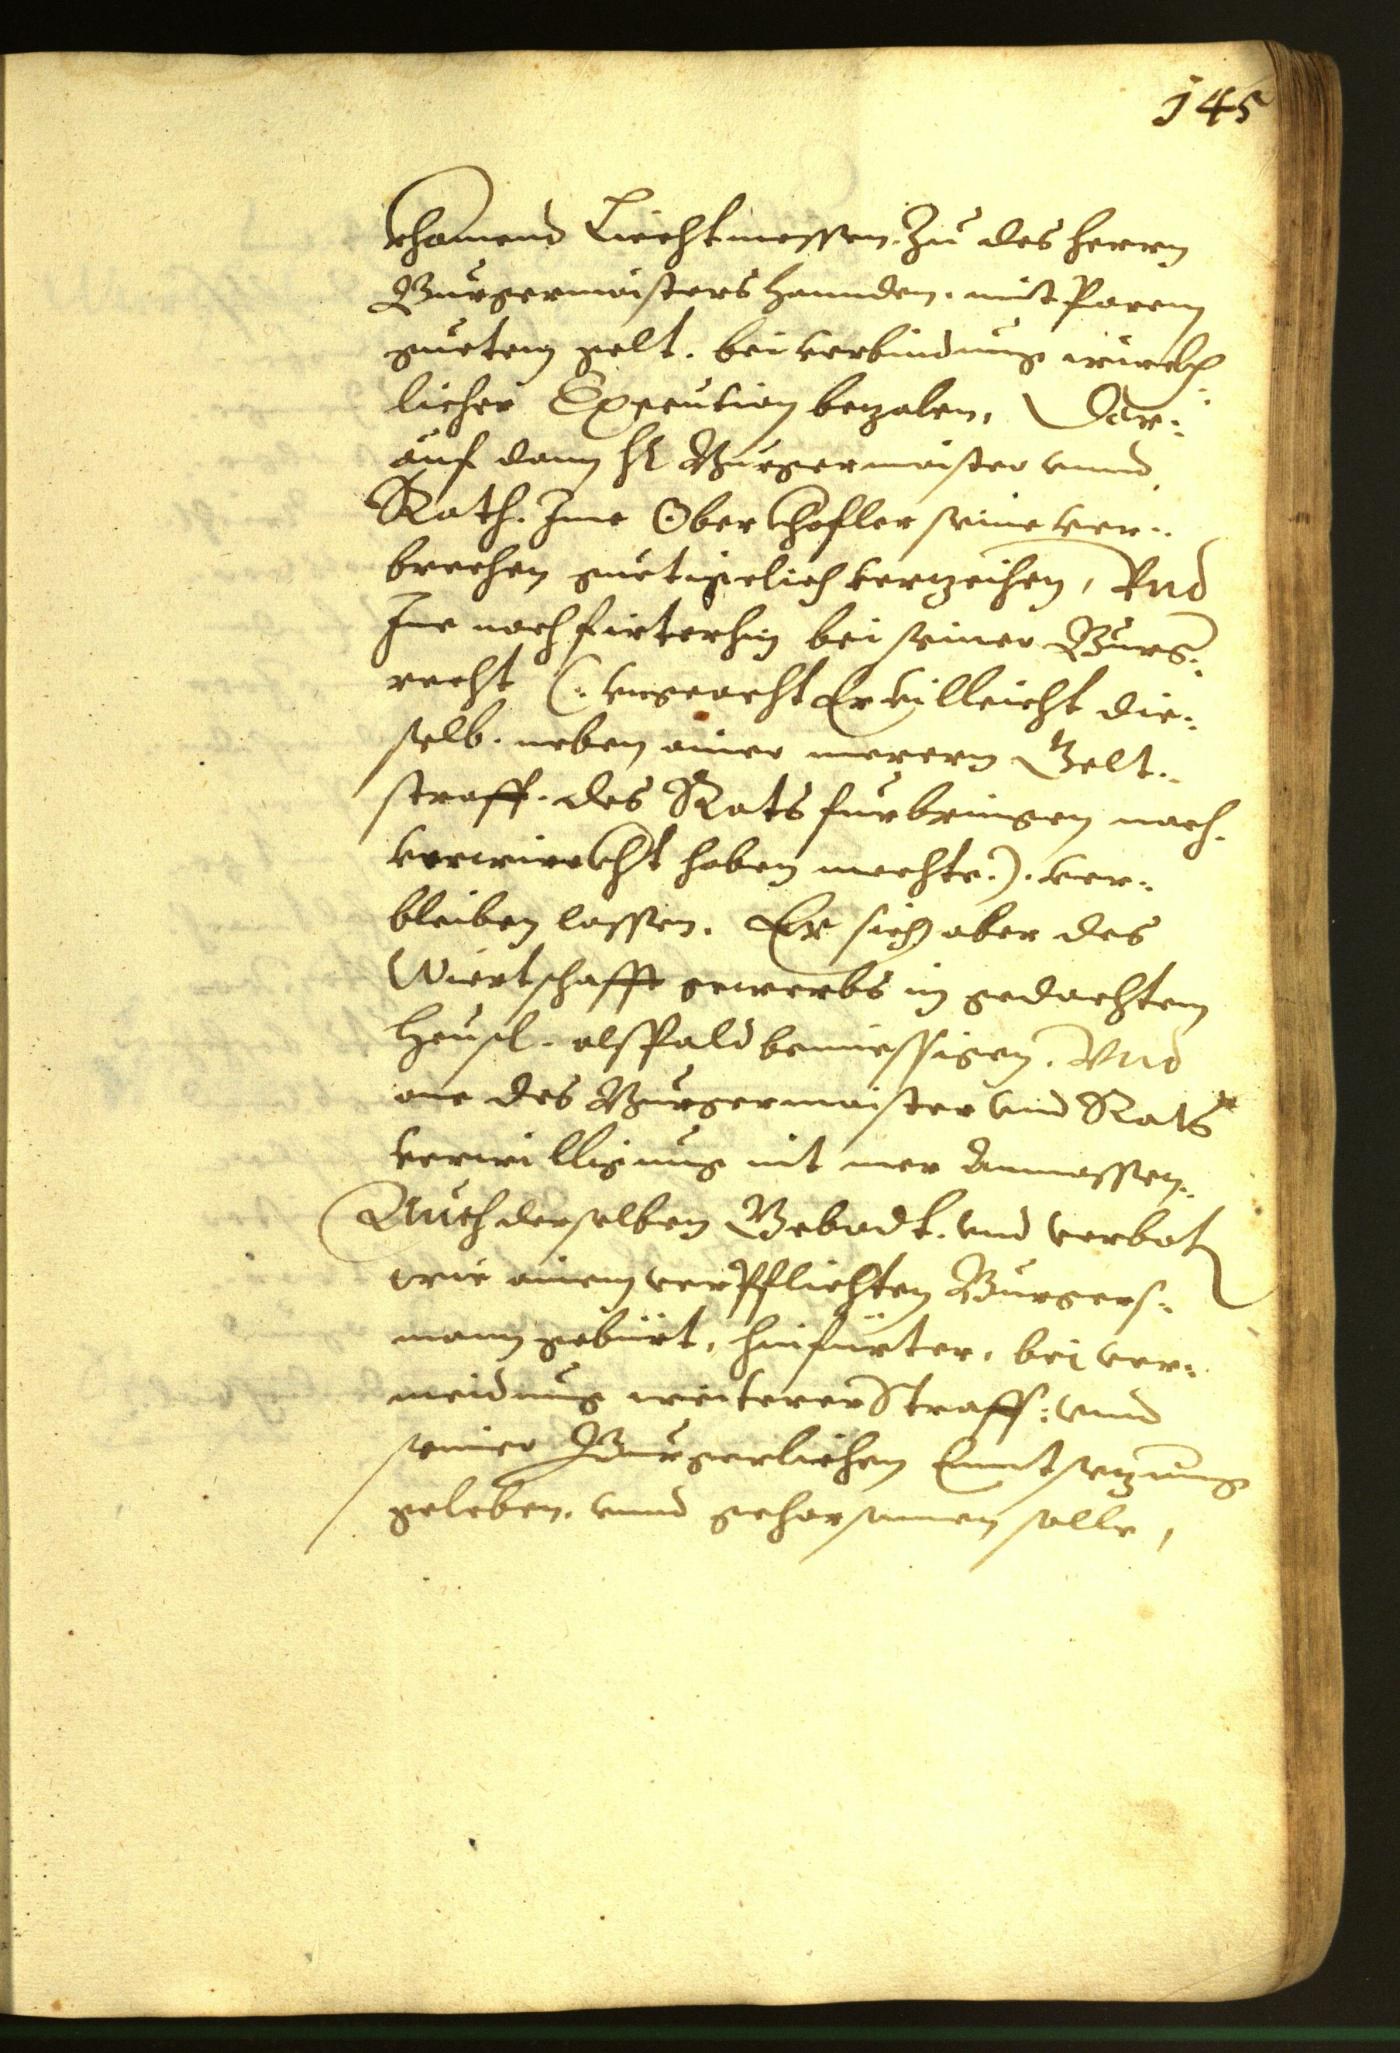 145
khomend Liechtmessen. Zu des herrn
Burgermaisters hannden. mit Parem
guetem gelt. bei verbindung würckh-
licher Execution bezalen, Dar:
auf dann hl Burgermaister vnnd
Rath. Ime Oberhofler seine ver:
brechen guetiglich verzeihen, Vnd
Ine noch firterhin bei seiner Burg:
recht (: vngeacht Er villeicht die:
selb. neben ainer merern Gelt:
straff. des Rats furbringen nach.
verwirckht haben mechte.). ver:
bleiben lassen. Er sich aber des
Wiertschafft gewerbs in gedachtem
Heusl. alspald bemiessigen. Vnd
one des Burgermaister vnd Rats
verwilligung nit mer Anmassen.
Auch derselben Gebodt. vnd verbot
wie ainem verpflichten Burgers:
mann gebürt, hinfürter, bei ver:
meidung weiterer Straff: vnnd
seiner Burgerlichen Enntsetzung
geleben. vnnd gehorsamen solle,